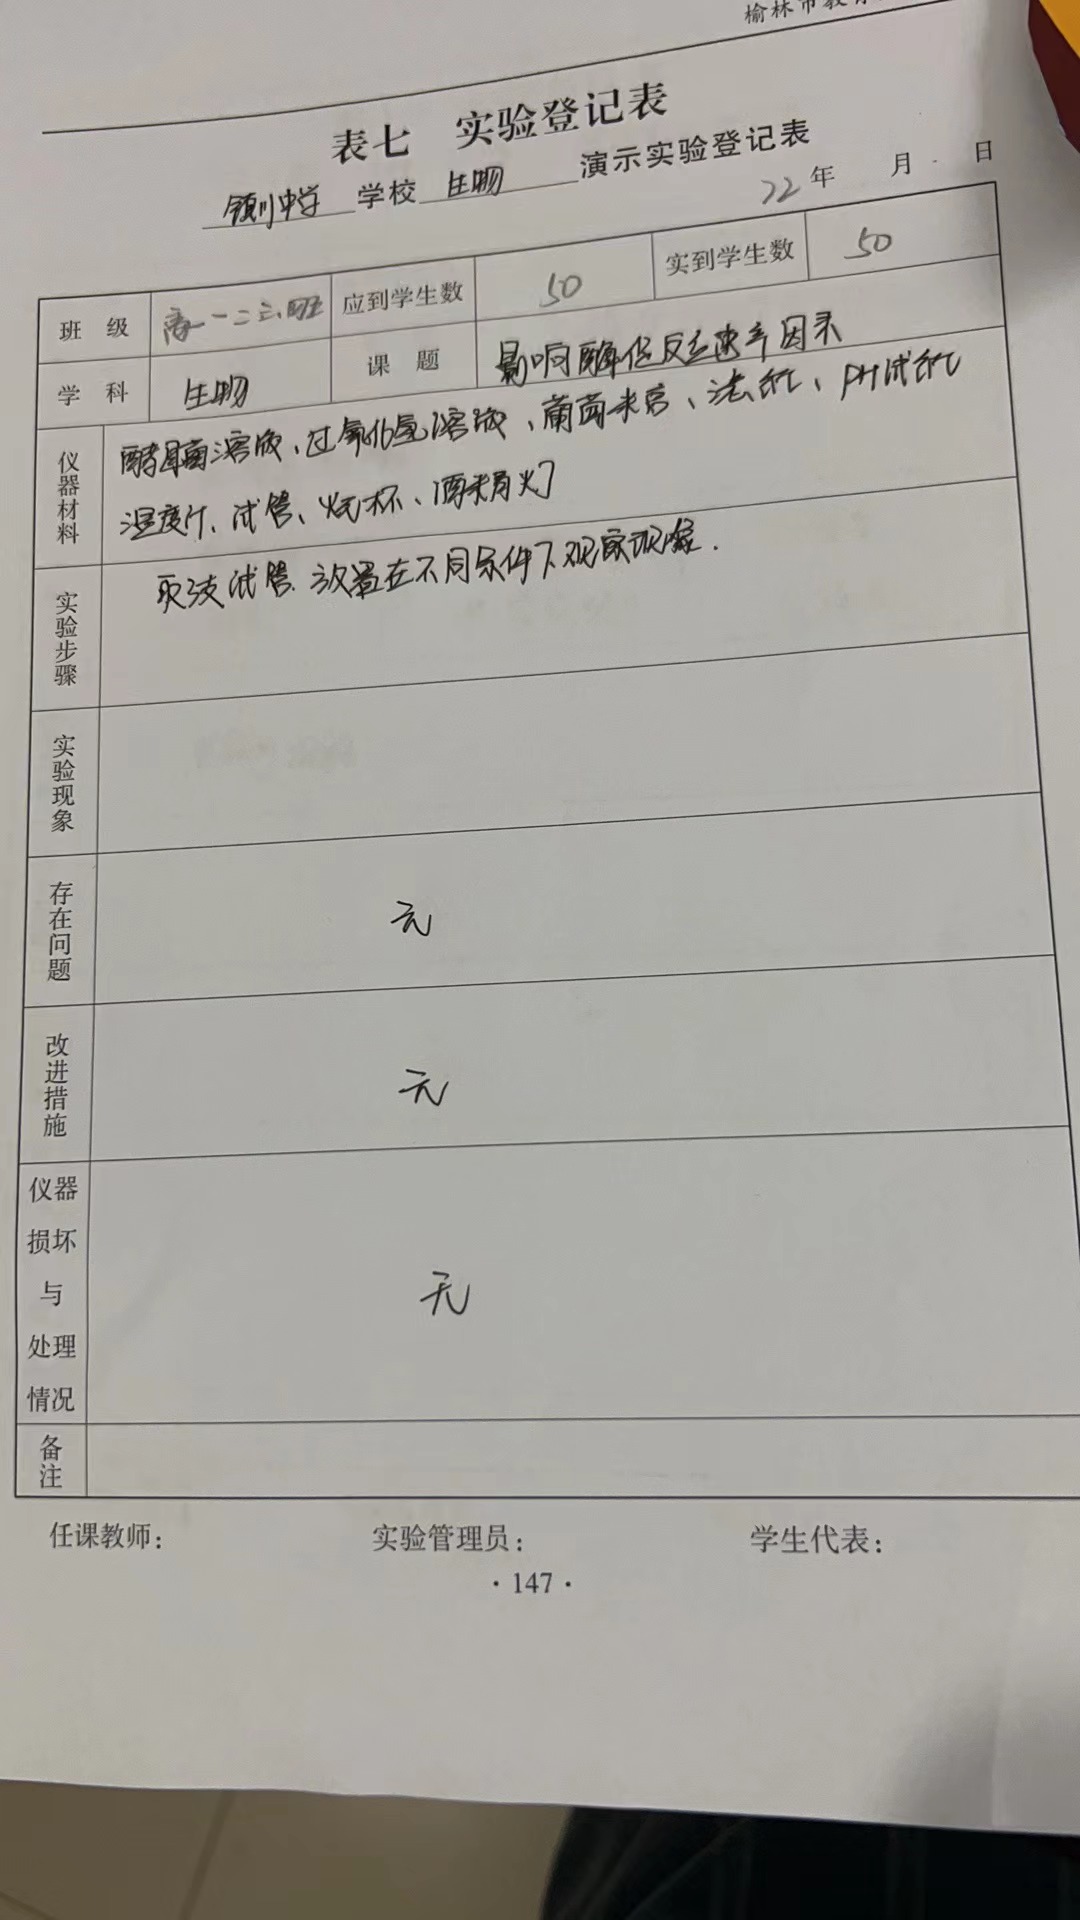 榆林市教育
表七 实验登记表
镇川中学 学校 生物 演示实验登记表
22年 月 日
班 级 高一一二三班 应到学生数 50 实到学生数 50
学 科 生物 课 题 影响酶促反应速率因素
仪器材料 酵母菌溶液、过氧化氢溶液、葡萄米宫、滤纸、PH试纸
温度计、试管、烧杯、酒精灯
实验步骤 取 试管 放置在不同条件下观察现象.
实验现象
存在问题 无
改进措施 无
仪器
损坏
与 无
处理
情况
备注
任课教师: 实验管理员: 学生代表:
·147·